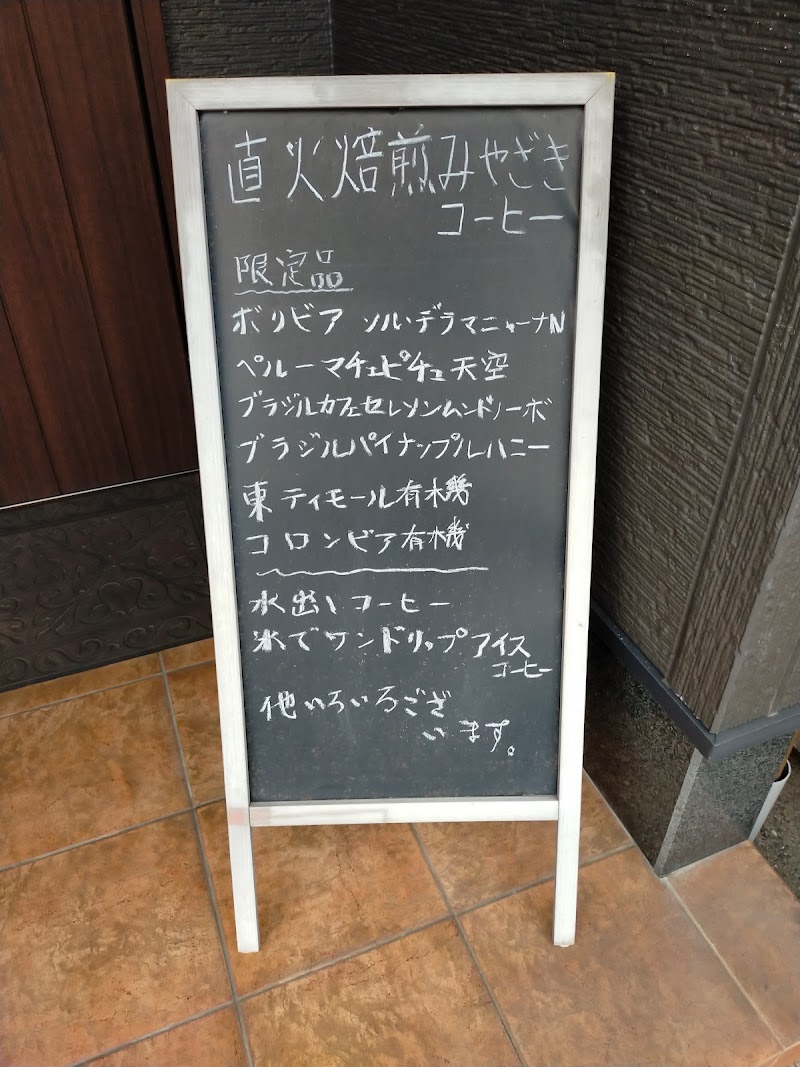 直火焙煎みやざき
コーヒー
限定品
ボリビア ソルデラマニャーナN
ペルーマチュピチュ天空
ブラジルカフェセレソンムンドノーボ
ブラジルパイナップルハニー
東ティモール有機
コロンビア有機
水出しコーヒー
氷でワンドリップアイス
コーヒー
他いろいろござ
います。